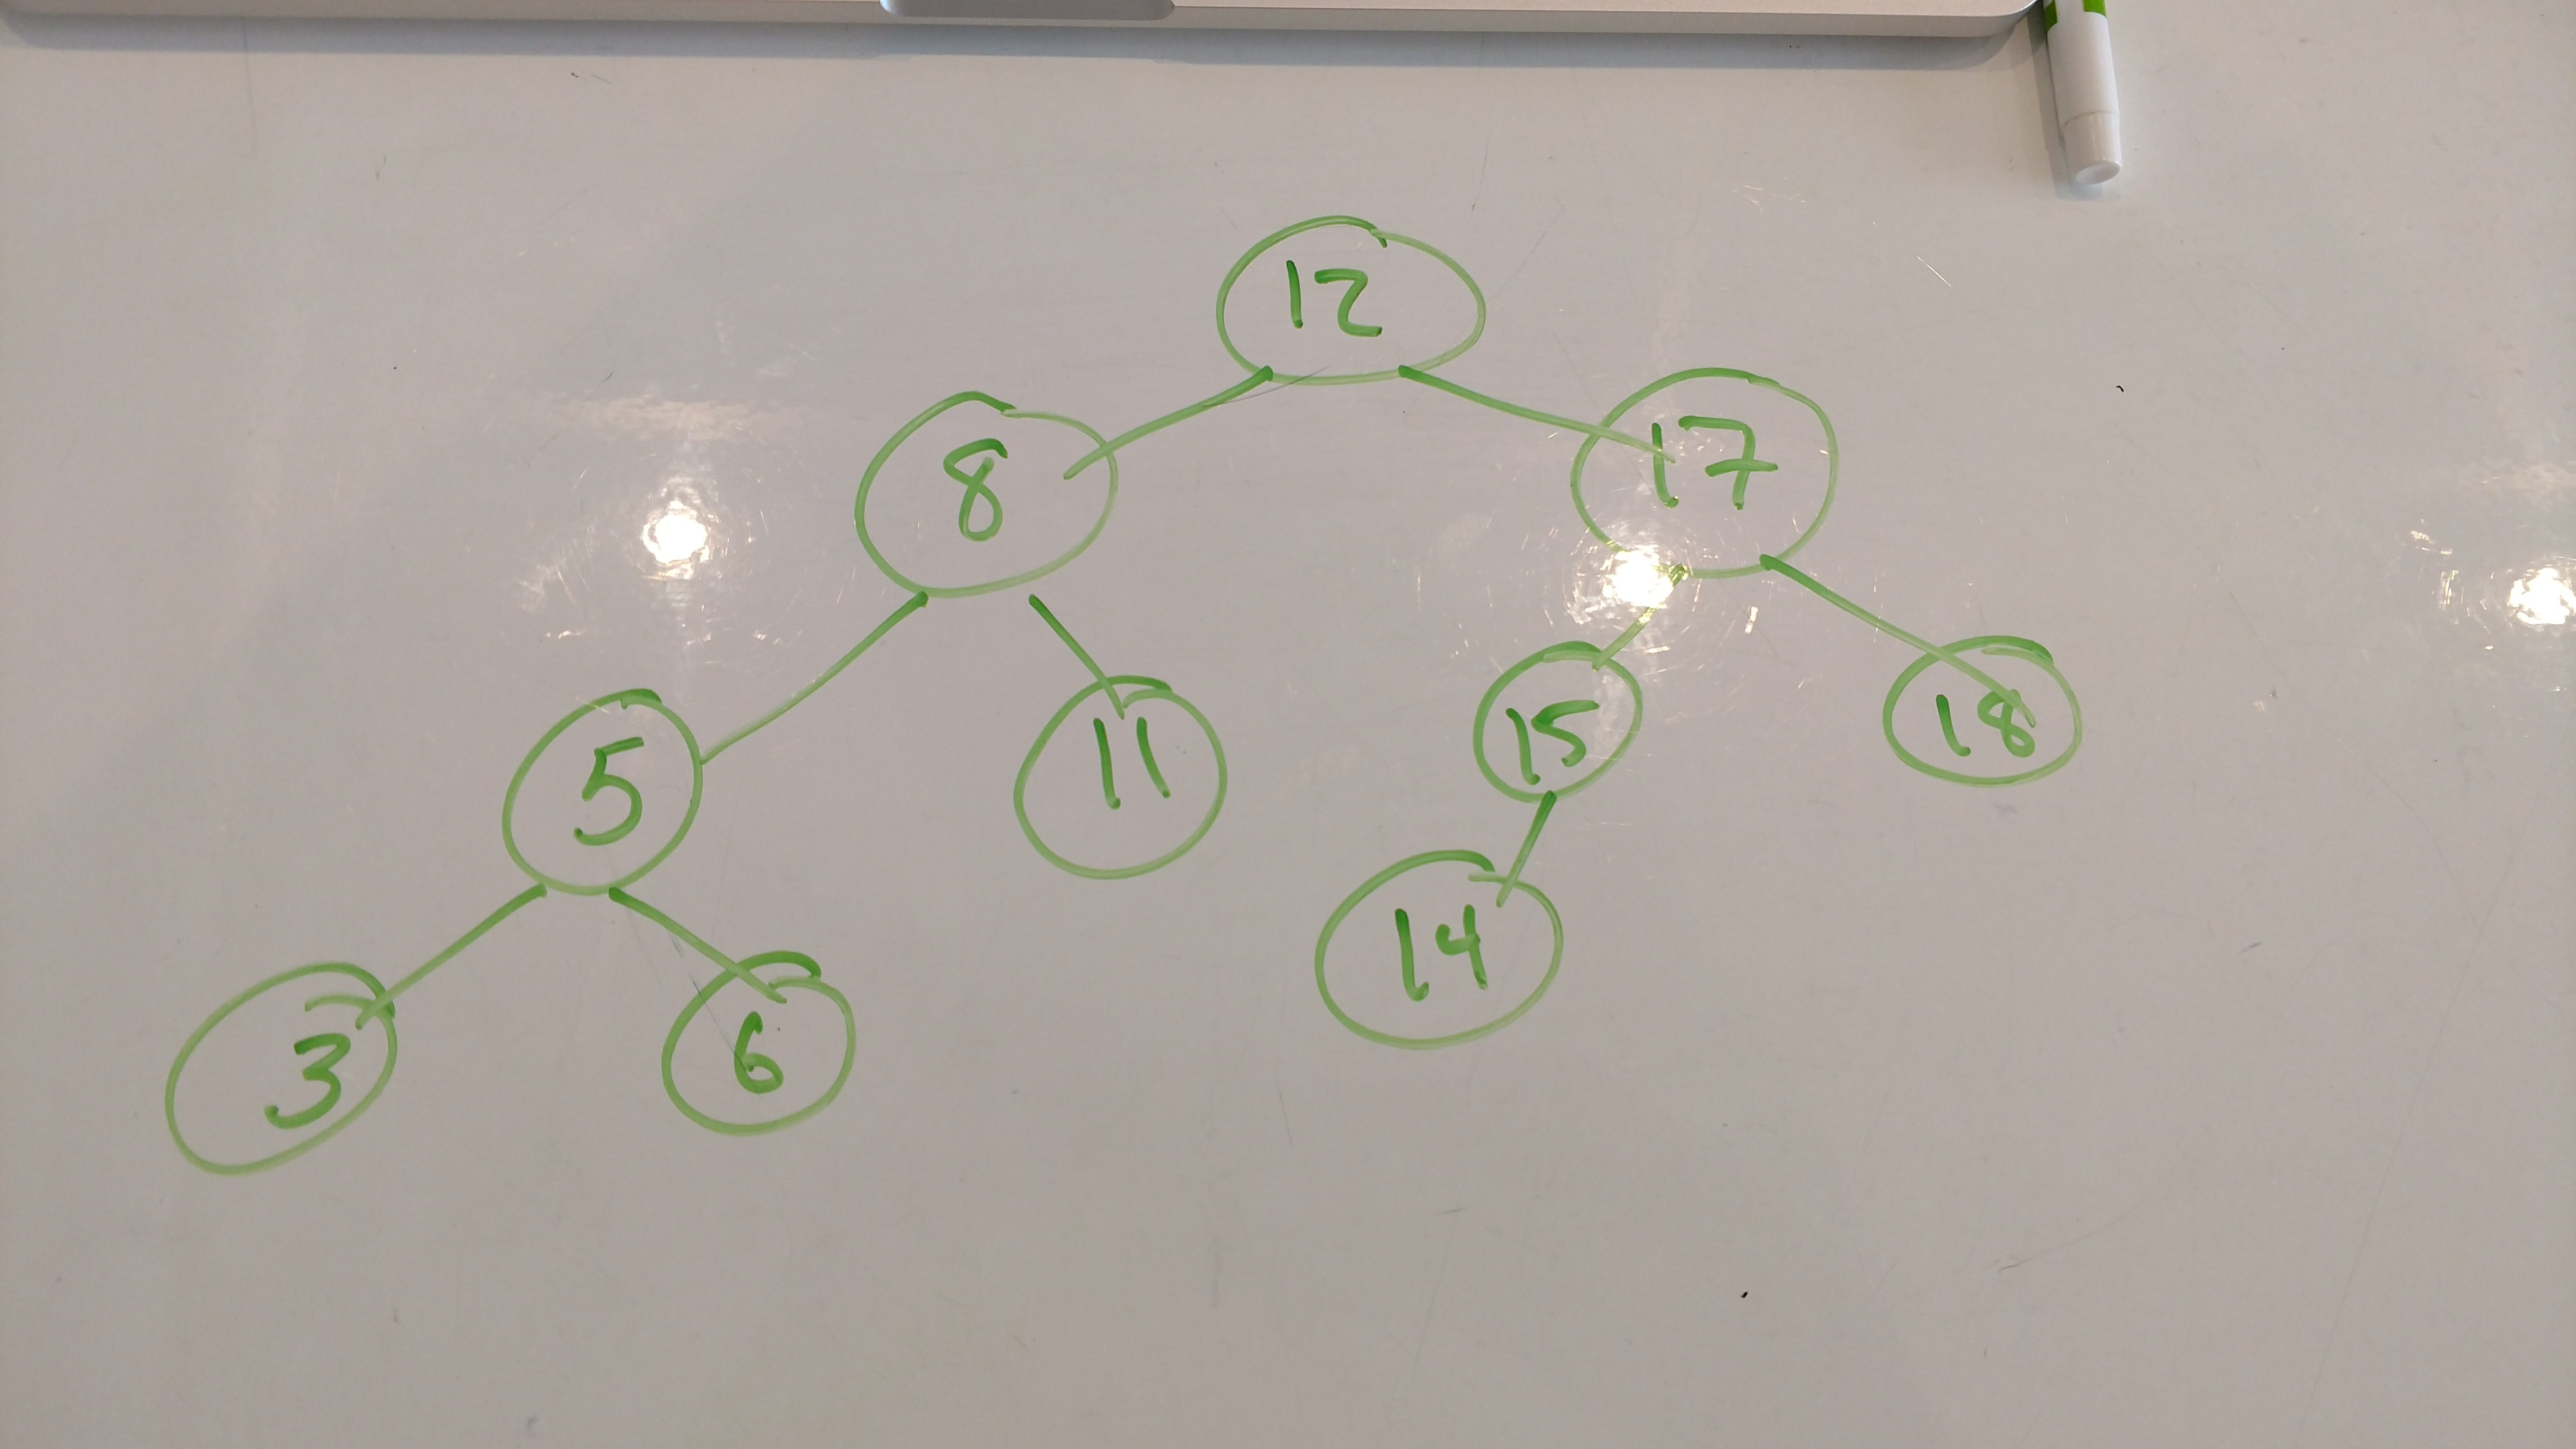 12
8 17
5 11 15 18
3 6 14